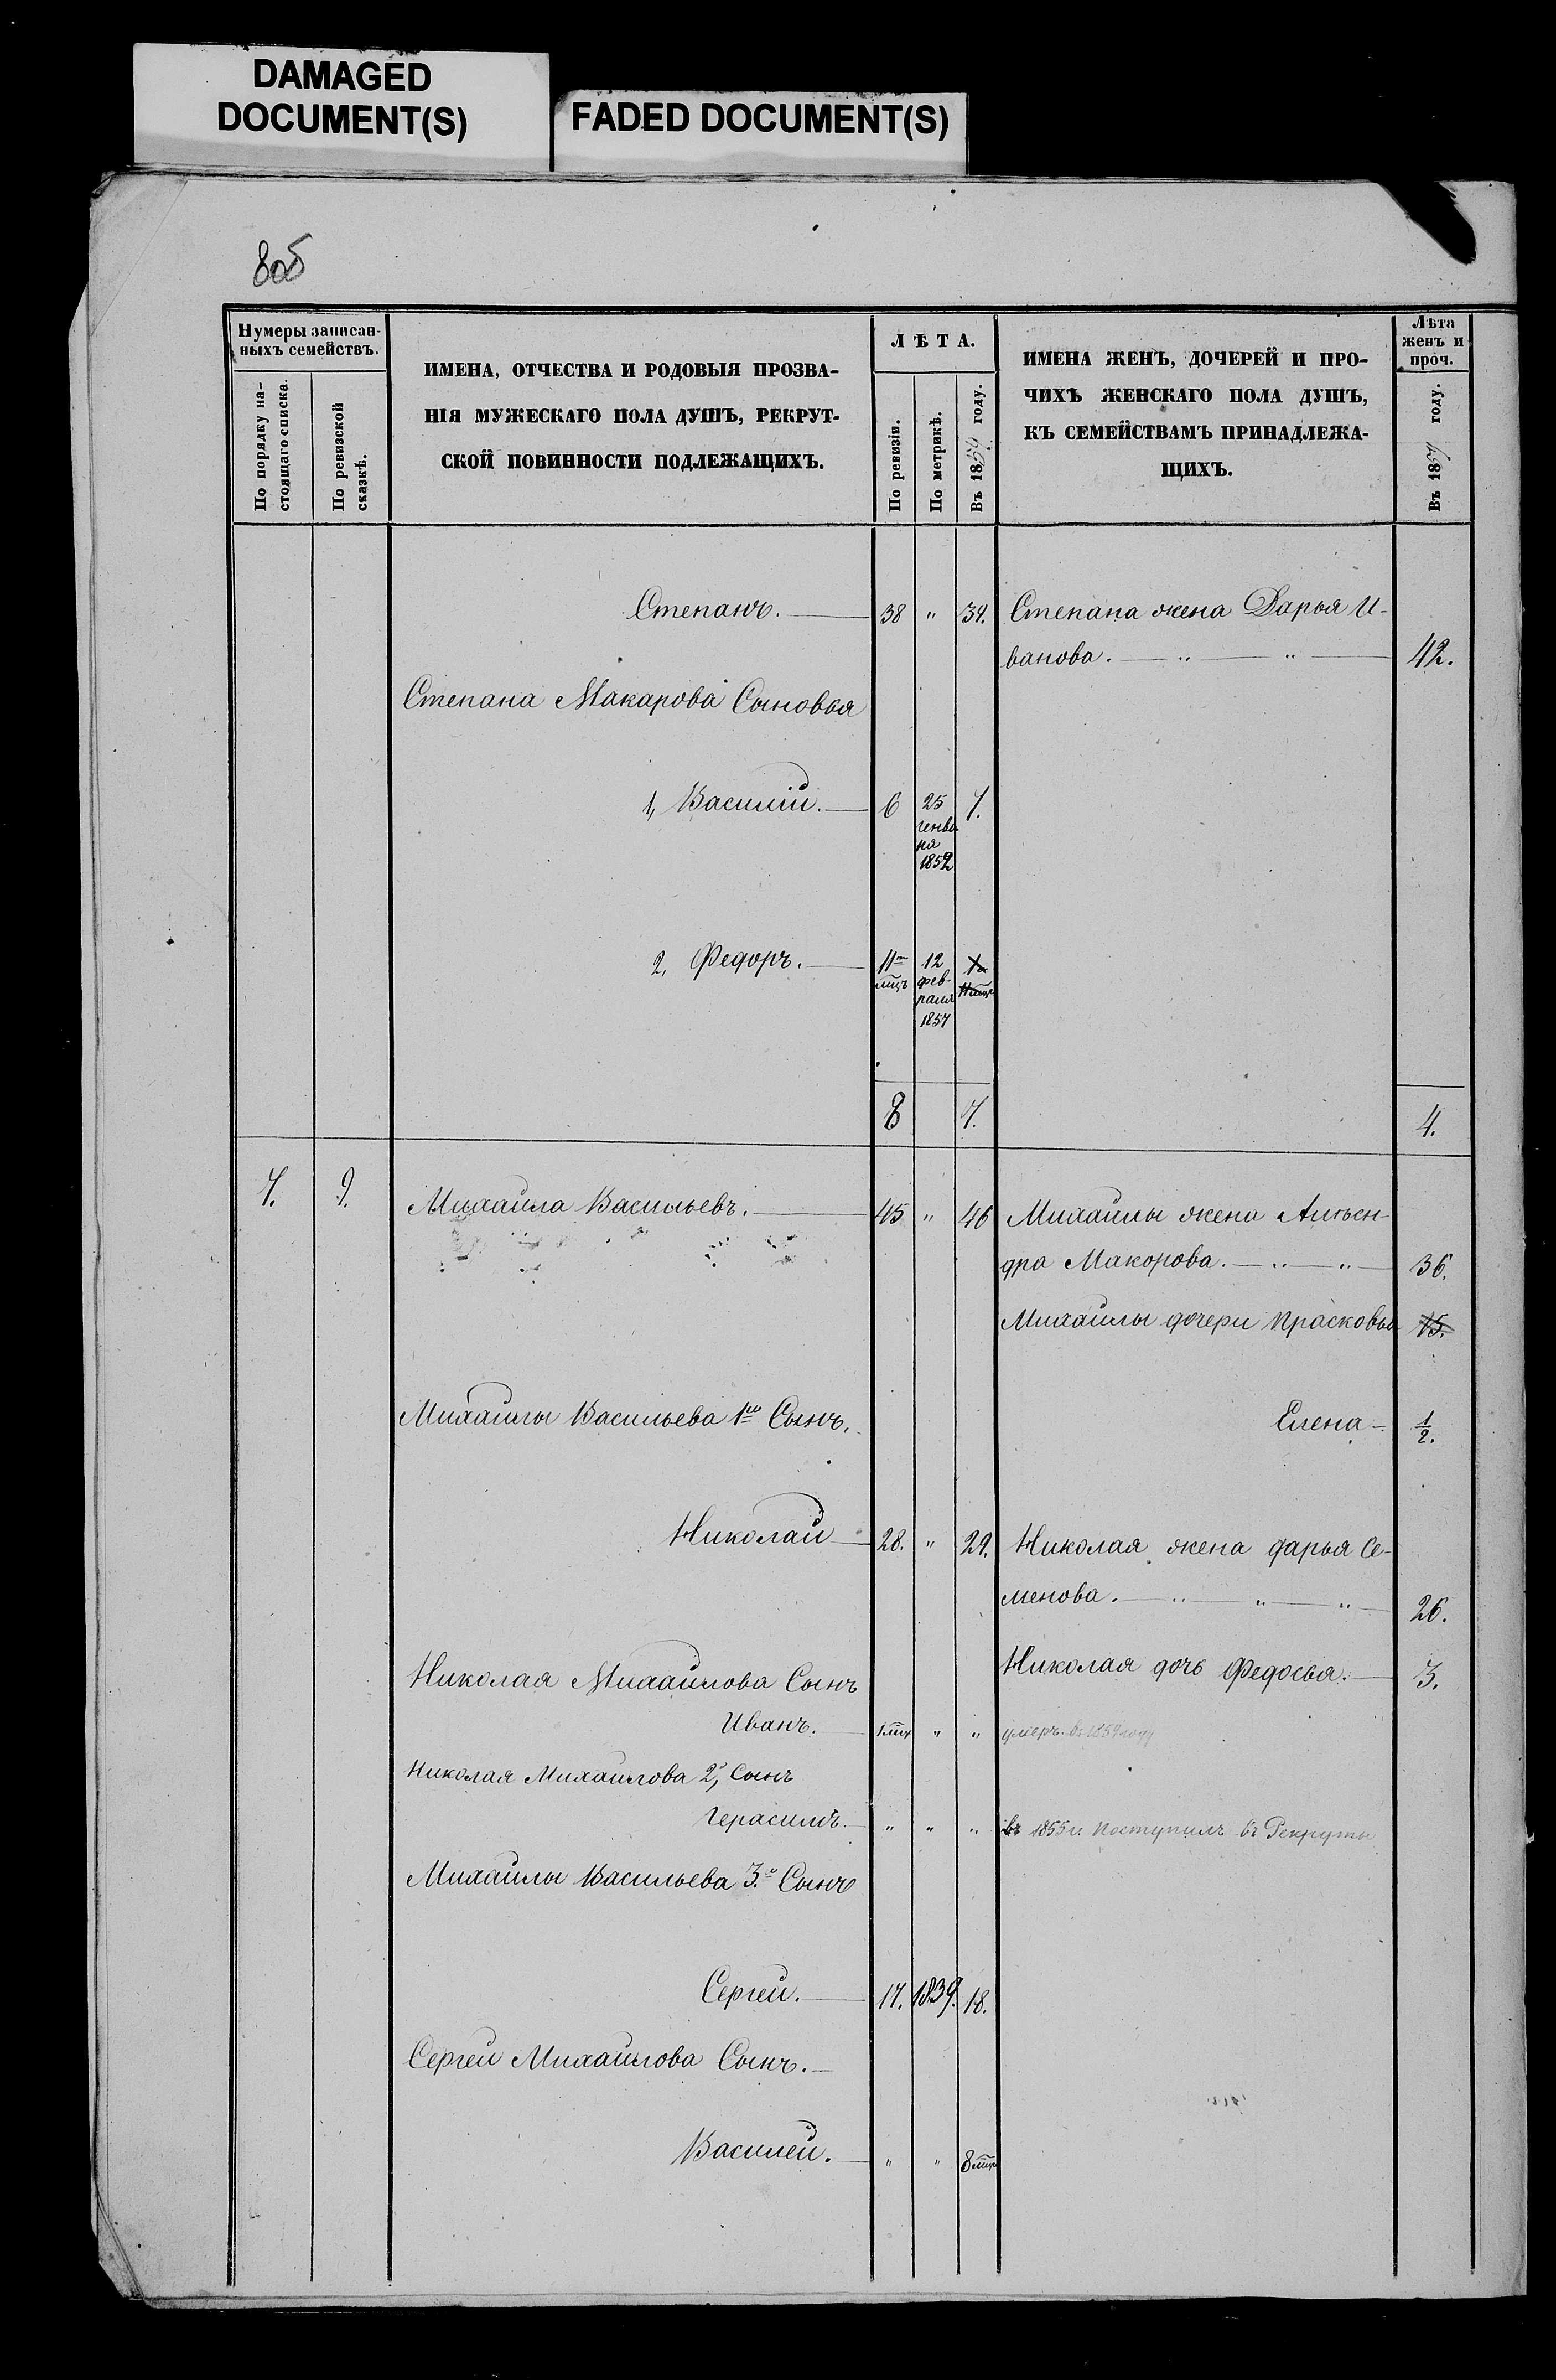 DAMAGED
DOCUMENT(S)
FADED DOCUMENT(S)
80б
Нумеры записан-
ныхъ семействъ.
По порядку на-
стоящаго списка.
По ревизской
сказкѣ.
ИМЕНА, ОТЧЕСТВА И РОДОВЫЯ ПРОЗВА-
НІЯ МУЖЕСКАГО ПОЛА ДУШЪ, РЕКРУТ-
СКОЙ ПОВИННОСТИ ПОДЛЕЖАЩИХЪ.
ЛѢТА.
По ревизіи.
По метрикѣ.
Въ 1859 году.
ИМЕНА ЖЕНЪ, ДОЧЕРЕЙ И ПРО-
ЧИХЪ ЖЕНСКАГО ПОЛА ДУШЪ,
КЪ СЕМЕЙСТВАМЪ ПРИНАДЛЕЖА-
ЩИХЪ.
Лѣта
женъ и
проч.
Въ 1859 году.
Степанъ. 38 " 39. Степана жена Дарья И-
ванова. " " 42.
Степана Макарова Сыновья
1, Василій. 6 25 7.
генва
ря
1852
2, Федоръ. 11 12
мцъ фев-
раля
1857
8 7. 4.
7. 9. Михаила Васильевъ. 45 " 46 Михайлы жена
дра Макорова. " " 36.
Михайлы дочери Прасковья 15.
Михайлы Васильева 1й Сынъ.
Елена 1/2.
Николай 28. " 29. Николая жена дарья Се-
менова. " " " 26.
Николая Михайлова Сынъ Николая дочь Федосья. 3.
Иванъ. 1 мцъ " " умеръ въ 1859 году
Николая Михайлова 2, Сынъ
Герасимъ. " " " въ 1855 г. поступилъ въ Рекруты
Михайлы Васильева 3й Сынъ
Сергей. 17. 1839. 18.
Сергей Михайлова Сынъ.
Василей. " " 8 мцъ